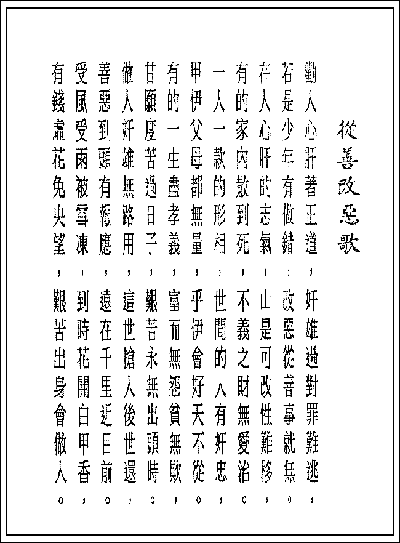 從善改惡歌
勸人心肝著王道，奸雄過對罪難逃；
若是少年有做錯；改惡從善事就無。
在人心肝的志氣，山是可改性難移，
有的家內散到死，不義之財無愛治。
一人一款的形相，世間的人有奸忠，
甲伊父母都無量，乎伊會好天不從。
有的一生盡孝義，富而無怨貧無欺，
甘願度苦過日子，艱苦永無出頭時。
做人奸雄無路用，這世搶人後世還，
善惡到頭有報應，遠在千里近目前。
受風受雨被雪凍，到時花開白甲香，
有錢盡花免央望，艱苦出身會做人。